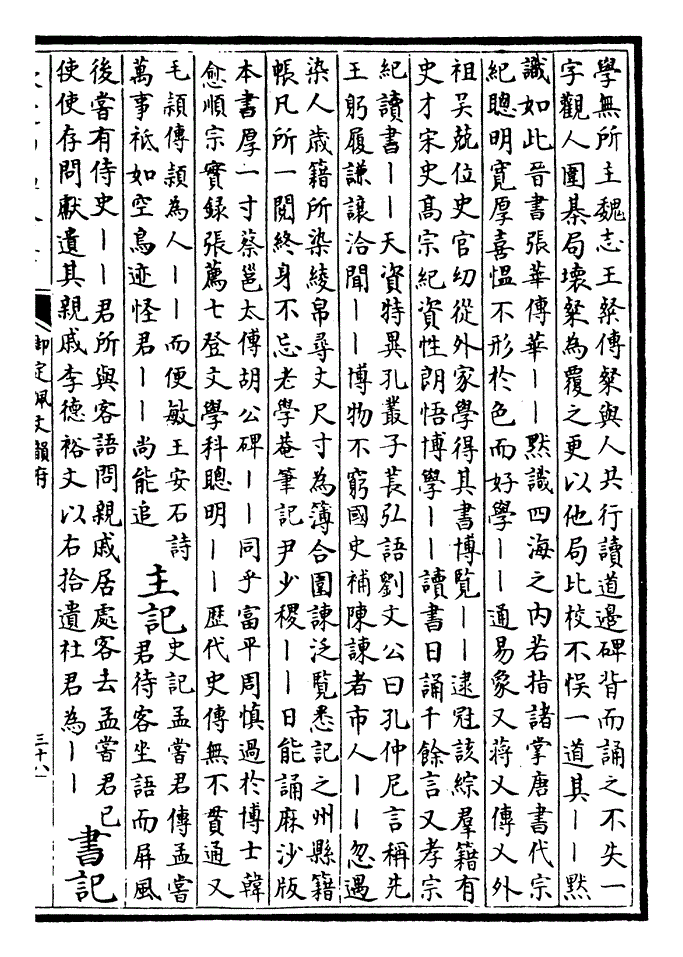 學無所主魏志王粲傳粲與人共行讀道邊碑背而誦之不失一
字觀人圍棊局壞粲為覆之更以他局比校不悞一道其丨丨黙
識如此晉書張華傳華丨丨黙識四海之内若指諸掌唐書代宗
紀聰明寛厚喜愠不形於色而好學丨丨通易象又蔣乂傳乂外
祖吴兢位史官幼從外家學得其書博覽丨丨逮冠該綜羣籍有
史才宋史髙宗紀資性朗悟博學丨丨讀書日誦千餘言又孝宗
紀讀書丨丨天資特異孔叢子萇弘語劉文公曰孔仲尼言稱先
王躬履謙讓洽聞丨丨博物不窮國史補陳諫者市人丨丨忽遇
染人歳籍所染綾帛尋丈尺寸為簿合圍諫泛覽悉記之州縣籍
帳凡所一閲終身不忘老學菴筆記尹少稷丨丨日能誦麻沙版
本書厚一寸蔡邕太傅胡公碑丨丨同乎富平周慎過於博士韓
愈順宗實録張薦七登文學科聰明丨丨歴代史傳無不貫通又
毛頴傳頴為人丨丨而便敏王安石詩
萬事祇如空鳥迹怪君丨丨尚能追
主記
史記孟嘗君傳孟嘗
君待客坐語而屏風
後嘗有侍史丨丨君所與客語問親戚居處客去孟嘗君已
使使存問獻遺其親戚李德裕文以右拾遺杜君為丨丨
書記
御定佩文韻府
三十八